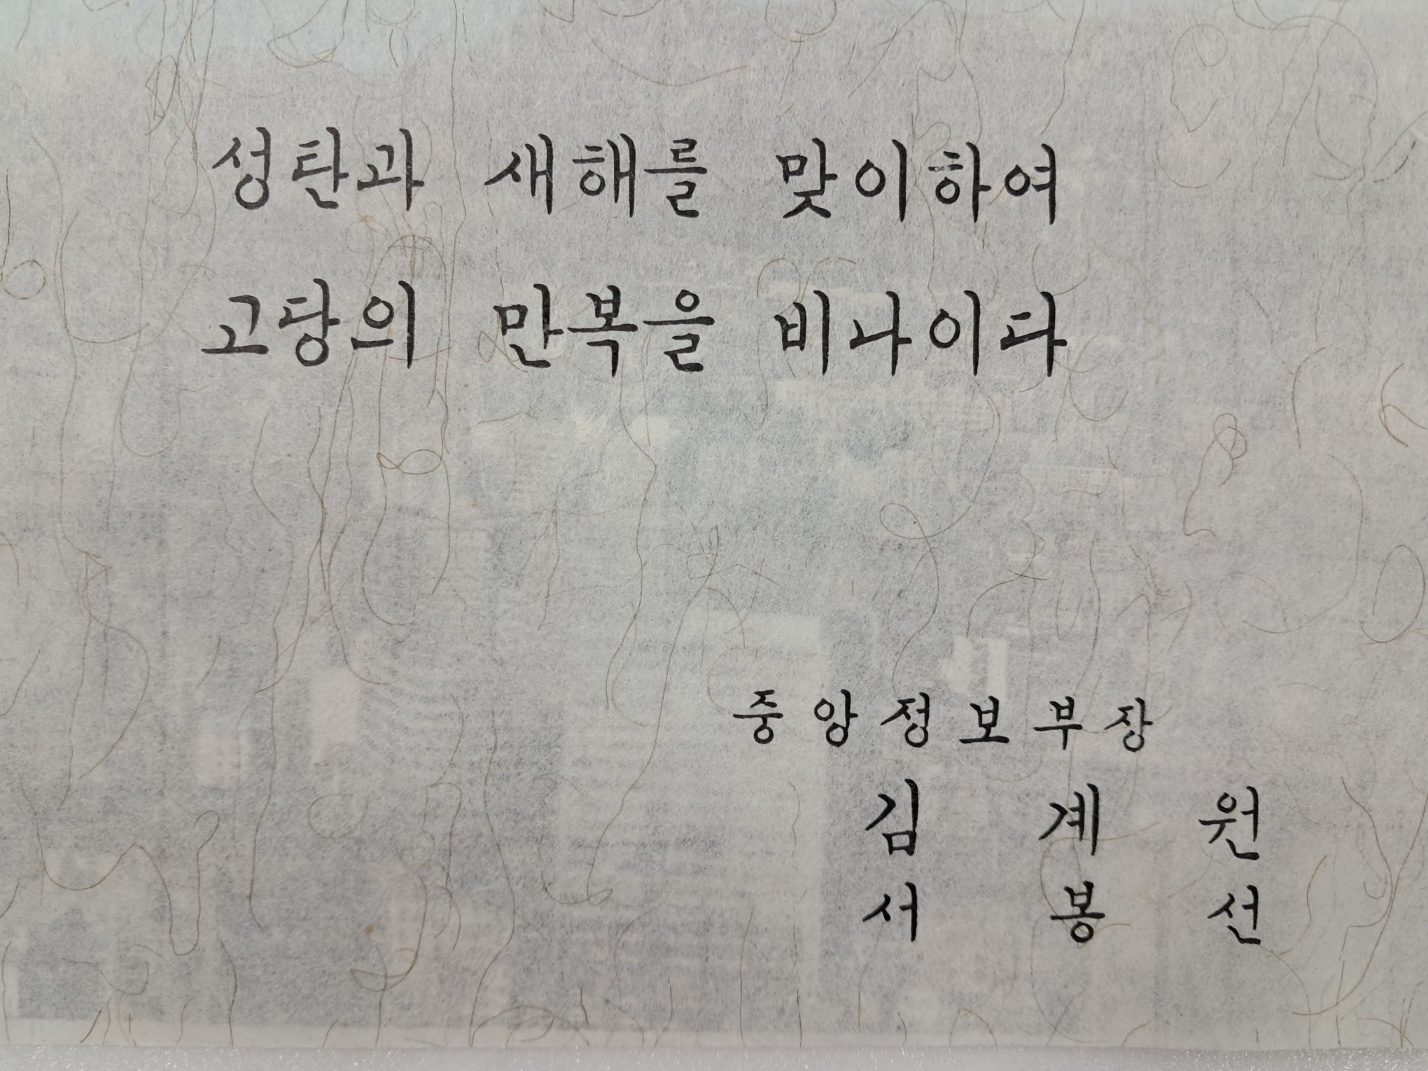 성탄과 새해를 맞이하여
고당의 만복을 비나이다
중앙정보부장
김계원
서봉선